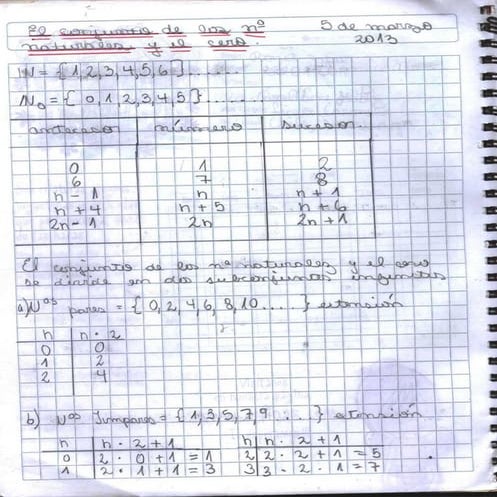 El conjunto de los nº 5 de marzo
naturales y el cero. 2013
IN = {1,2,3,4,5,6}......
IN₀ = { 0,1,2,3,4,5}.......
antecesor número sucesor.
0 1 2
6 7 8
n - 1 n n + 1
n + 4 n + 5 n + 6
2n - 1 2n 2n + 1
El conjunto de los nº naturales y el cero
se divide en dos subconjuntos infinitos
a) Nºˢ pares = { 0, 2, 4, 6, 8, 10 ..... } extensión
n n · 2
0 0
1 2
2 4
b) Nºˢ Impares = { 1, 3, 5, 7, 9 ..... } extensión
n n · 2 + 1 n n · 2 + 1
0 2 · 0 + 1 = 1 2 2 · 2 + 1 = 5
1 2 · 1 + 1 = 3 3 3 · 2 · 1 = 7